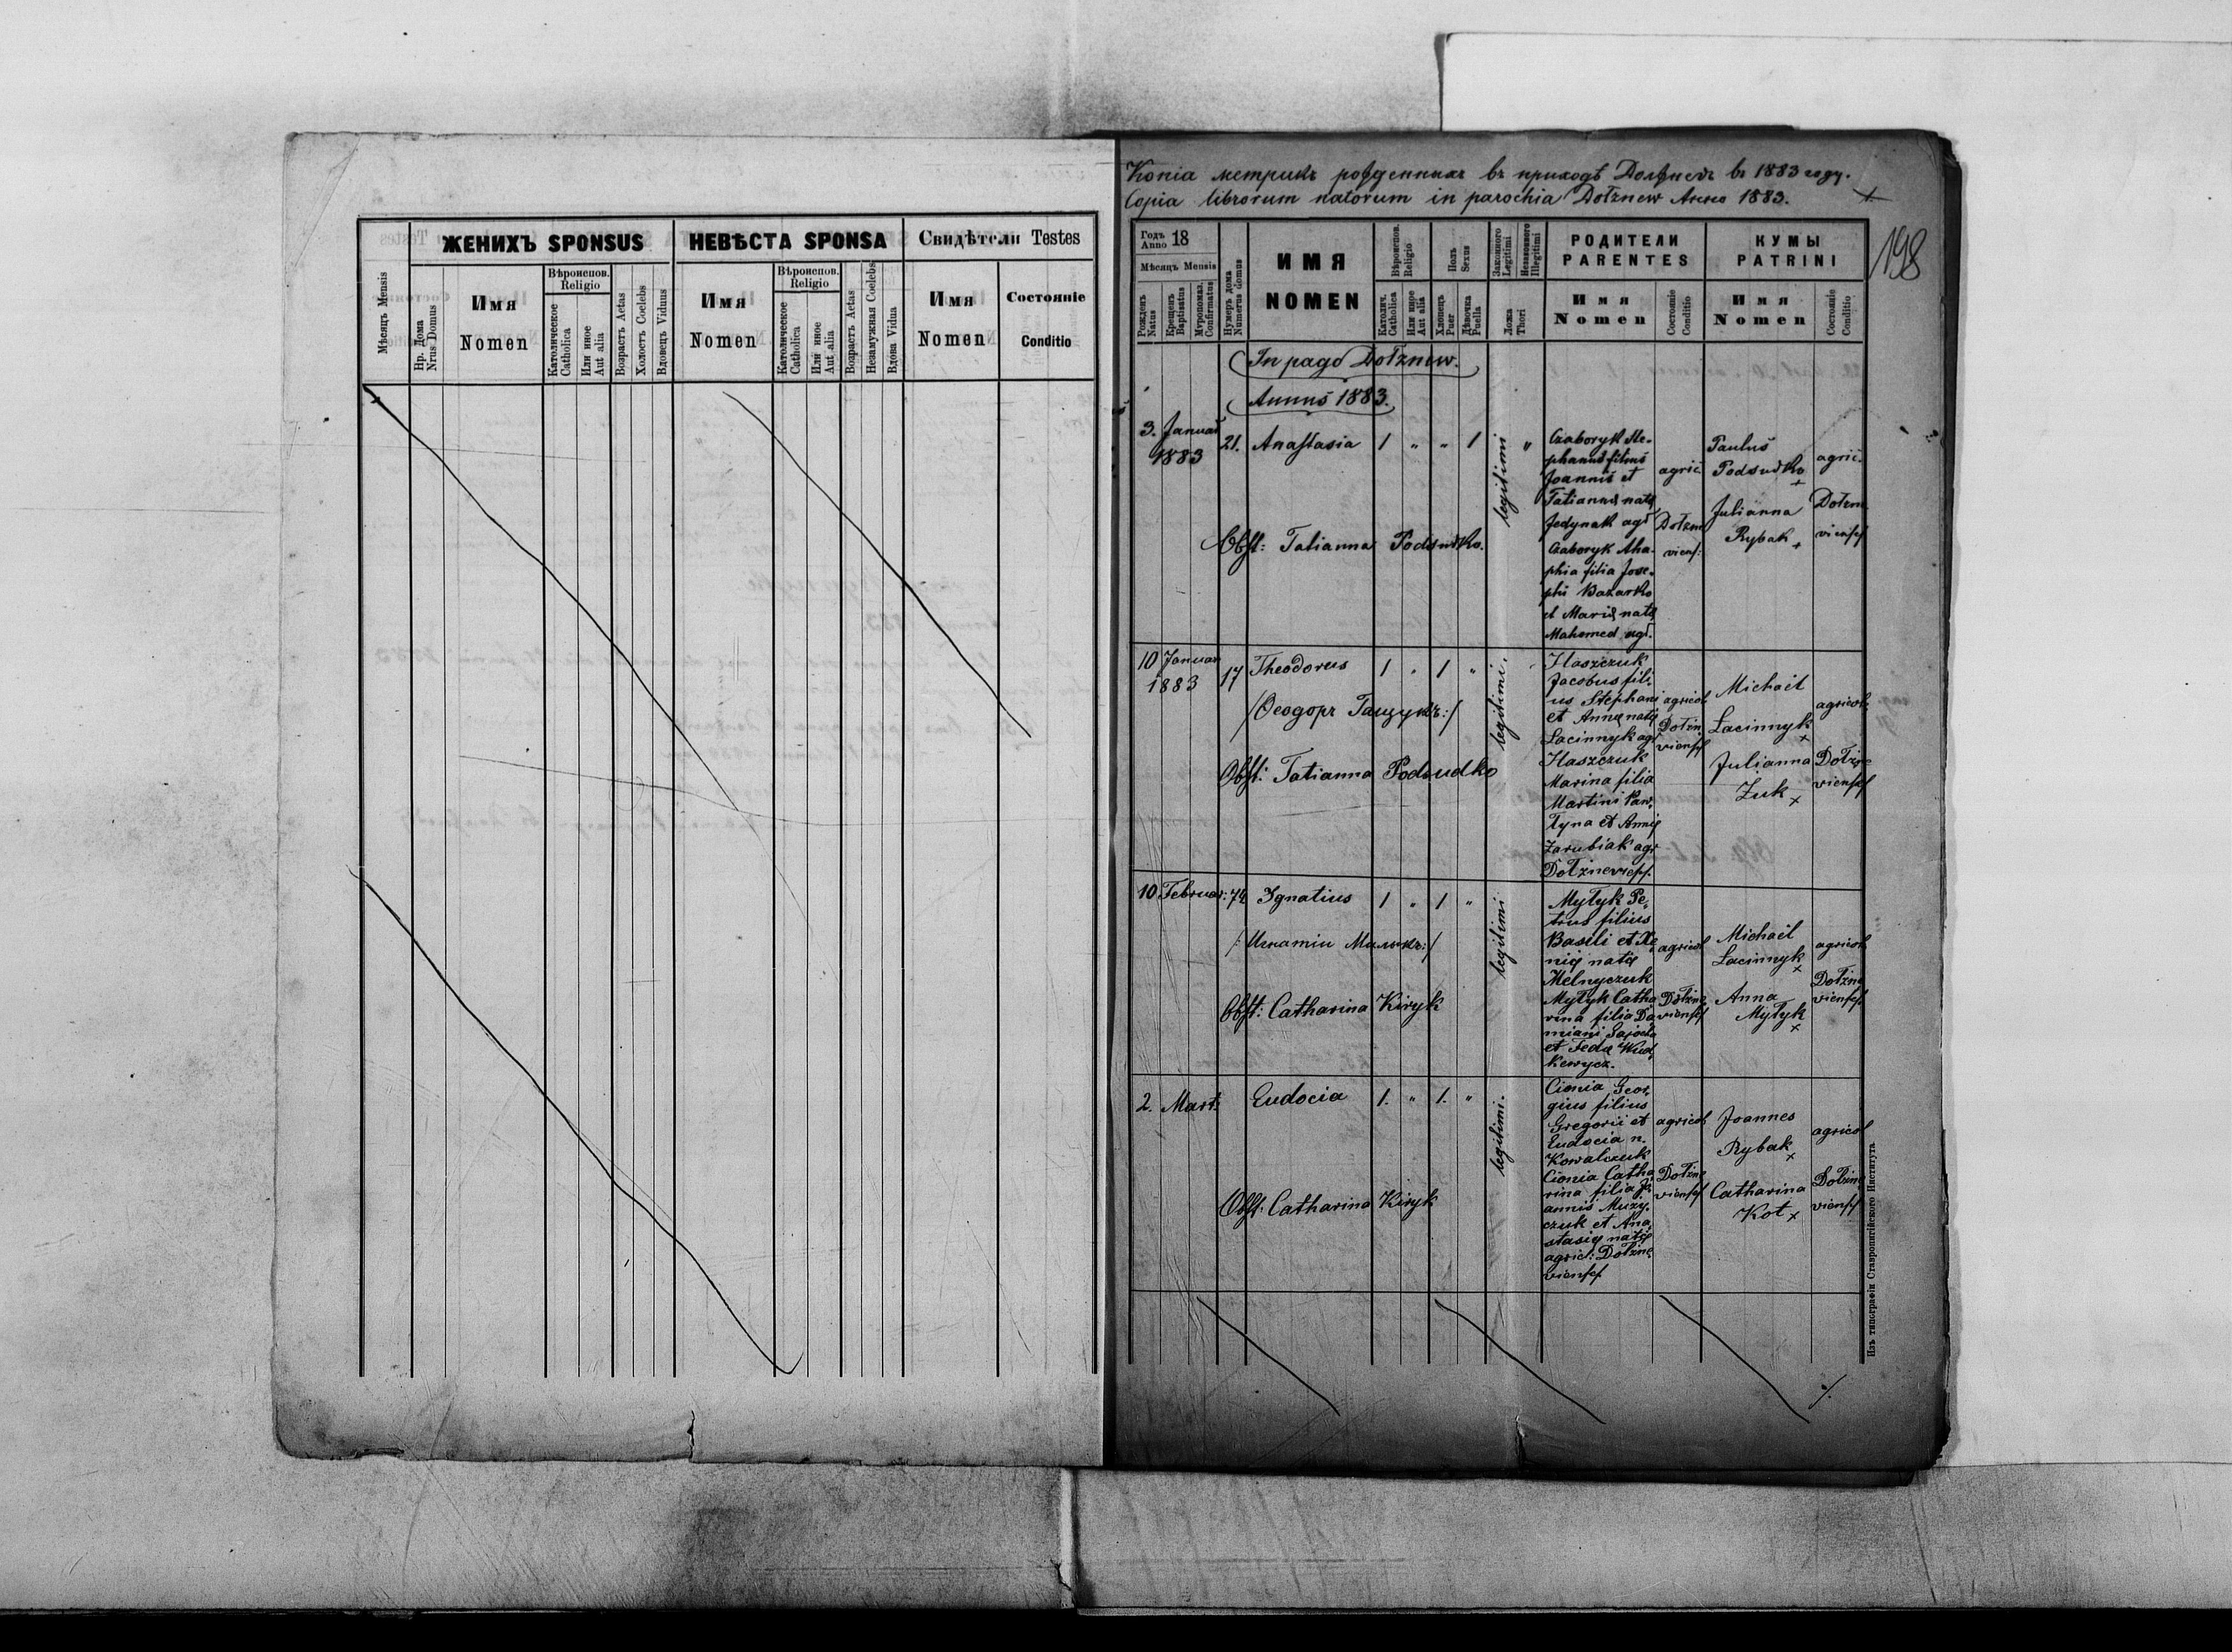 ЖЕНИХЪ SPONSUS
НЕВѢСТА SPONSA
Свидѣтели Testes
Мѣсяцъ Mensis
Нр. Дома
Nrus Domus
Имя
Nomen
Вѣроиспов.
Religio
Католическое
Catholica
Или иное
Aut alia
Возрастъ Aetas
Холостъ Coelebs
Вдовецъ Viduus
Имя
Nomen
Вѣроиспов.
Religio
Католическое
Catholica
Или иное
Aut alia
Возрастъ Aetas
Незамужная Coelebs
Вдова Vidua
Имя
Nomen
Состояніе
Conditio
Копіа метрикъ рожденныхъ въ приходѣ Должневъ въ 1883 году.
Copia librorum natorum in parochia Dołznew Anno 1883.
198
Годъ
Anno 18
Мѣсяцъ Mensis
Рожденъ
Natus
Крещенъ
Baptisatus
Муропомаз.
Confirmatus
Нумеръ дома
Numerus domus
ИМЯ
NOMEN
Вѣроиспов.
Religio
Католич.
Catholica
Или иное
Aut alia
Полъ
Sexus
Хлопецъ
Puer
Дѣвочка
Puella
Законного
Legitimi
Незаконного
Illegitimi
Ложа
Thori
РОДИТЕЛИ
PARENTES
Имя
Nomen
Состояніе
Conditio
КУМЫ
PATRINI
Имя
Nomen
Состояніе
Conditio
In pago Dołznew.
Annus 1883.
3. Januar
1883
21. Anastasia 1 " " 1
legitimi "
Obst: Tatianna Podsudko.
Czaboryk Ste-
phanus filius
Joannis et
Tatiannę natę
Jedynak agr
Czaboryk Aha-
phia filia Jose-
phi Bazarko
et Marię natę
Mahomed agr.
agric.
Dołzne
viens:
Paulus
Podsudko
+
Julianna
Rybak +
agric.
Dołzne
vienses
10 Januar
1883
17 Theodorus 1 " 1 "
/Ѳеодоръ Гащукъ:/
legitimi.
Obst: Tatianna Podsudko
Haszczuk
Jacobus fili-
us Stephani
et Annę natę
Łacinnyk agr
Haszczuk
Marina filia
Martini Paw-
łyna et Annię
Zarubiak agr
Dołznewiess.
agricol
Dołzne
vienses
Michael
Łacinnyk
+
Julianna
Żuk +
agricol
Dołzne
vienses
10 Februar: 74 Ignatius 1 " 1 "
legitimi
Obst: Catharina Kiryk
Mytyk Pe-
trus filius
Basili et Xe
nię natę
Melnyczuk
Mytyk Catha
rina filia Da
miani
et Fedę Wud
kewycz.
agricol
Dołzne
viensef
Michael
Łacinnyk
+
Anna
Mytyk
+
agricol
Dołzne
viensef
2. Mart: Eudocia 1. " 1. "
legitimi.
Obst: Catharina Kiryk
Cionia Geor-
gius filius
Gregorii et
Eudocia n.
Kowalczuk
Cionia Catha
rina filia Jo
annis Muzy-
czuk et Ana-
stasię natę
agric: Dołzne
viensef
agricol
Dołzne
viensef
Joannes
Rybak
+
Catharina
Kot +
agricol
Dołzne
viensef
Изъ типографіи Ставропигійского Института